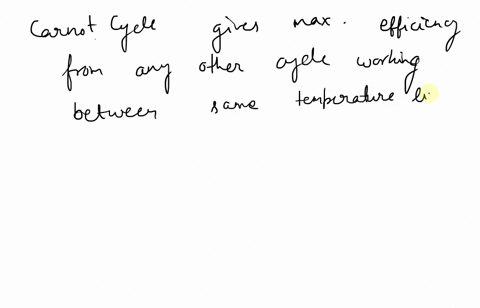 Carnot Cycle gives max. efficiency
from any other cycle working
between same temperature li